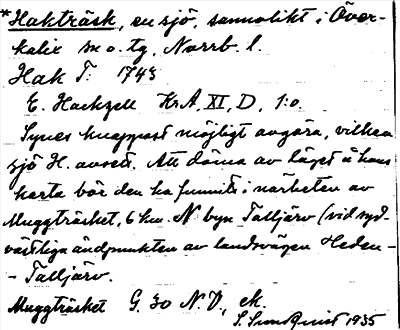 *Hakträsk, en sjö, sannolikt i Över-
kalix sn o. tg, Norrb. l.
Hak T: 1743
E. Hackzell KrA, XI, D, 1:o.
Synes knappast möjligt avgöra, vilken
sjö H. avsett. Att döma av läget å hans
karta bör den ha funnits i närheten av
Muggträsket, 6 km. N byn Talljärv (vid syd-
västliga ändpunkten av landsvägen Heden-
- Talljärv.
Muggträsket G. 30 N.V., ek.
S. Sundquist 1935